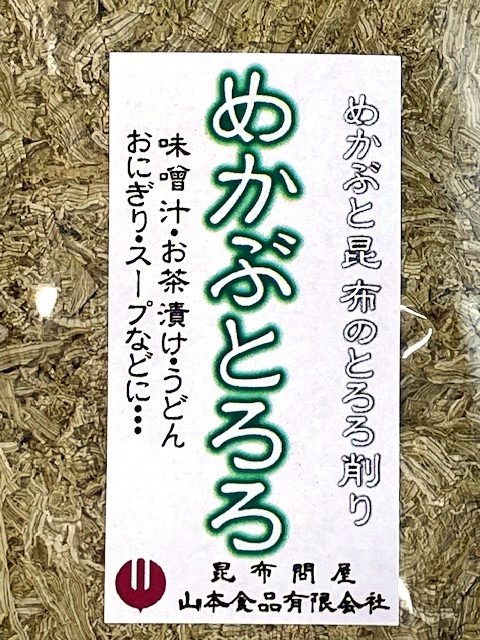 めかぶと昆布のとろろ削り
めかぶとろろ
味噌汁・お茶漬け・うどん
おにぎり・スープなどに・・・
昆布問屋
山本食品有限会社